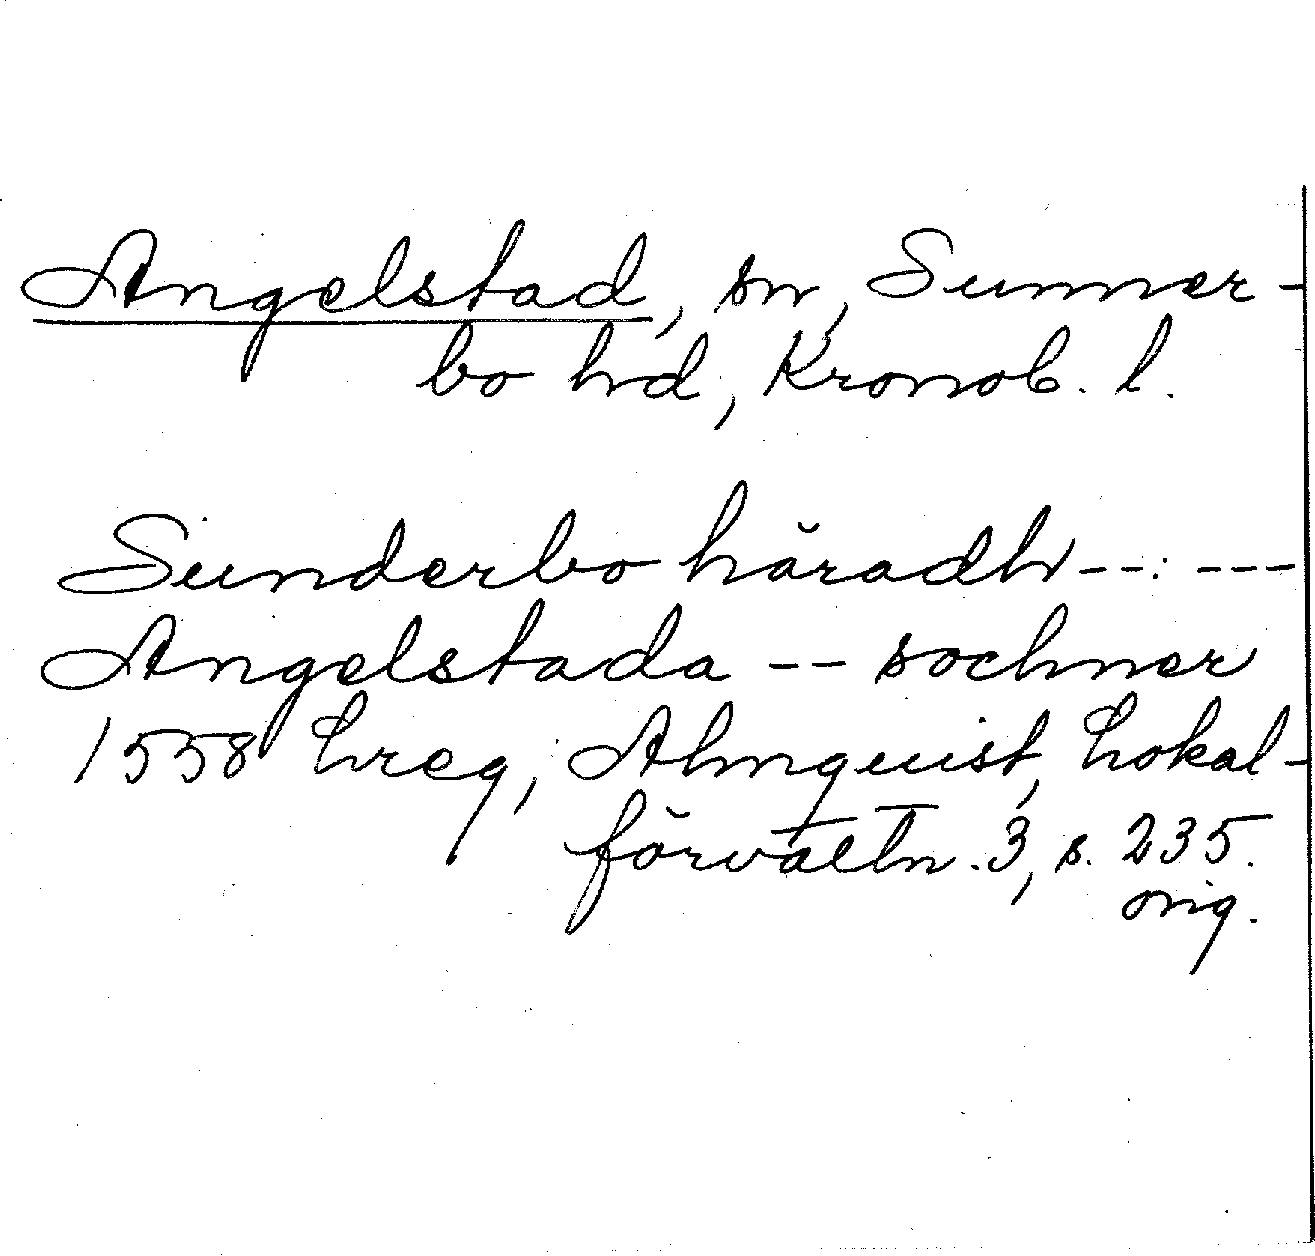 Angelstad, sn, Sunner-
bo hd, Kronob. l.
Sunderbo häradh --- ---
Angelstada -- sochner
1558 hreg, Almquist, Lokal-
förvaltn. 3, s. 235.
orig.